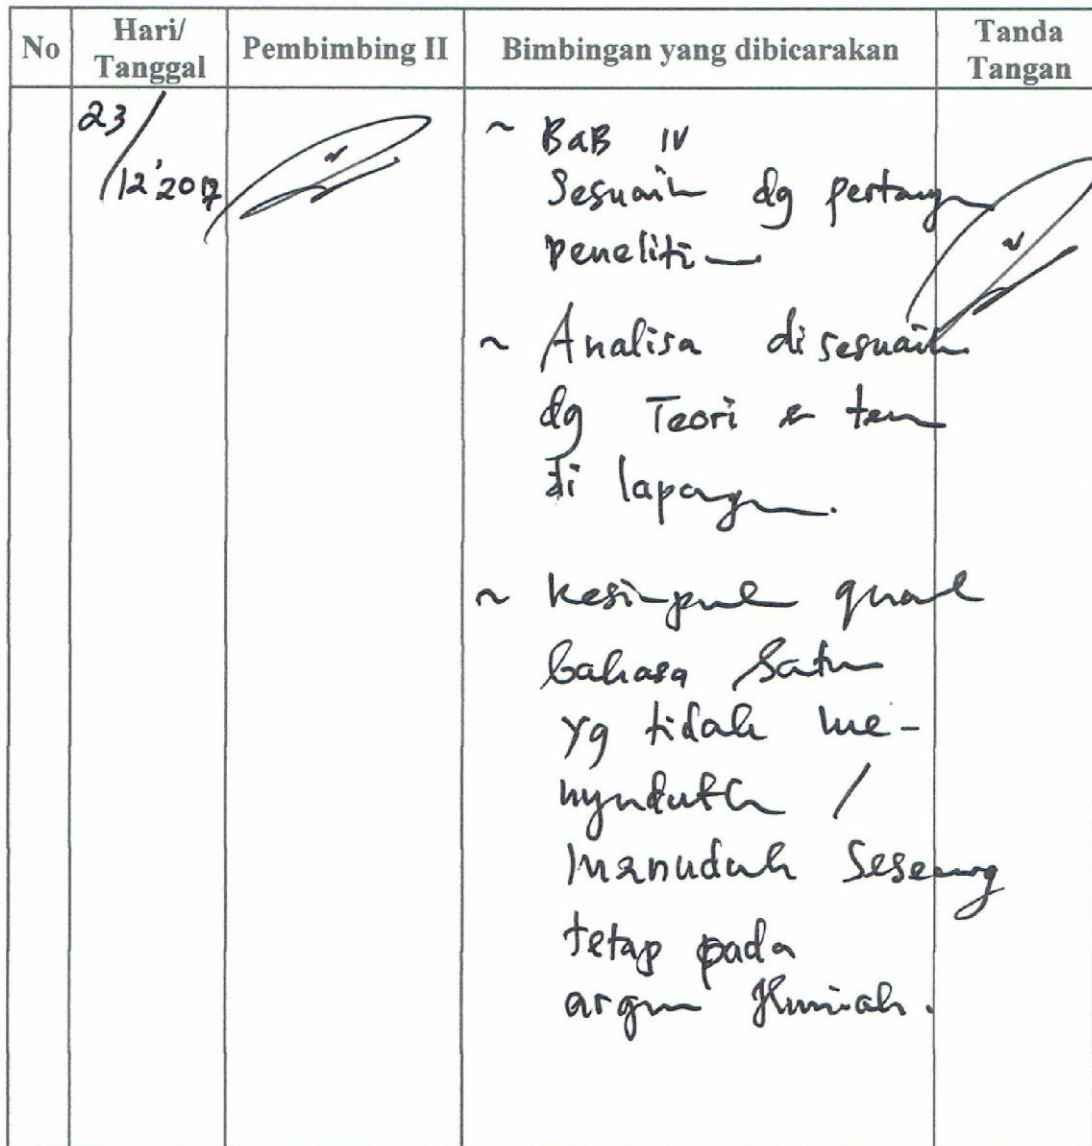 No Hari/ Tanggal Pembimbing II Bimbingan yang dibicarakan Tanda Tangan
23/12'2017
~ BaB IV
Sesuaik dg pertang
peneliti
~ Analisa disesuaik
dg Teori & tem
di lapang.
~ kesimpul
bahasa
yg tidak me-
nyudutk /
menuduh Seseorang
tetap pada
argum Ilmiah.